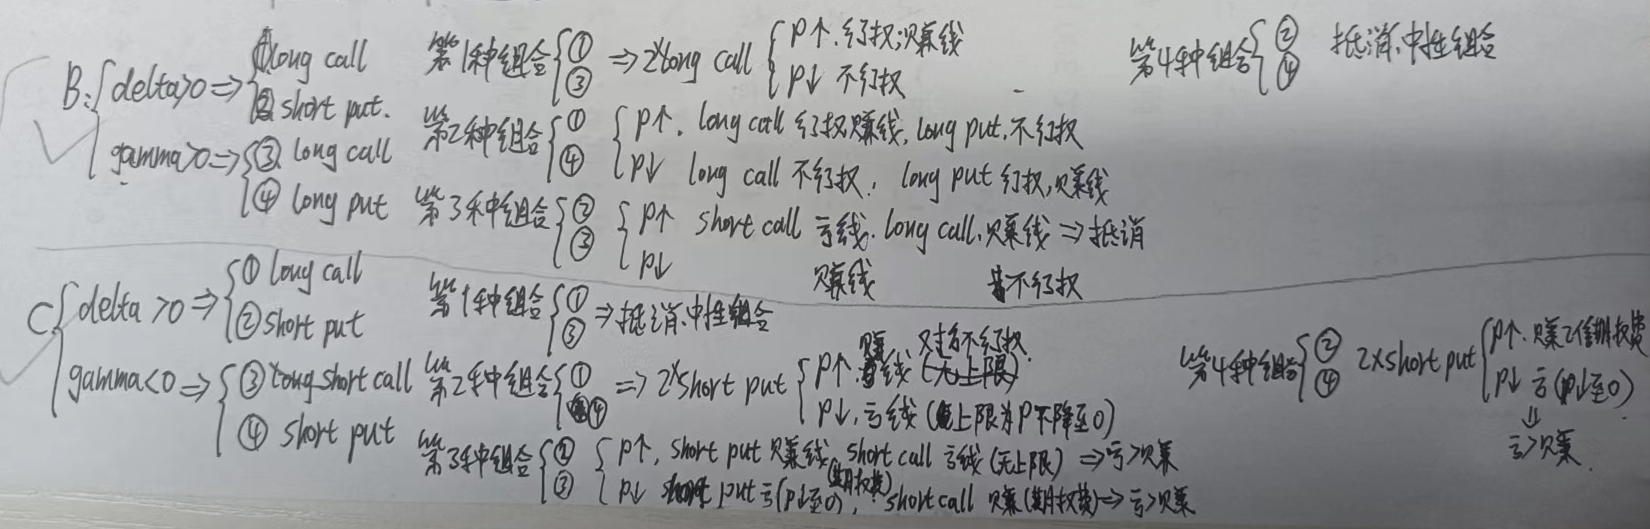 B: { delta>0 => { ① long call 第1种组合 { ① ③ => 2×long call { P↑. 行权;赚钱 P↓ 不行权
② short put.
第4种组合 { ② ④ 抵消.中性组合
gamma>0 => { ③ long call 第2种组合 { ① ④ { P↑. long call 行权赚钱, long put. 不行权
P↓ long call 不行权, long put 行权,赚钱
④ long put 第3种组合 { ② ③ { P↑ short call 亏钱. long call.赚钱 => 抵消
P↓ 赚钱 不行权
C { delta >0 => { ① long call 第1种组合 { ① ③ => 抵消.中性组合
② short put
gamma<0 => { ③ short call 第2种组合 { ① ④ => 2×short put { P↑. 赚 对方不行权.
P↓, 亏钱 (上限为P下降至0)
④ short put
第4种组合 { ② ④ 2×short put { P↑. 赚2倍期权费
P↓ 亏(P↓至0)
⇓
亏>赚.
第3种组合 { ② ③ { P↑, short put 赚钱(期权费), short call 亏钱(无上限) => 亏>赚
P↓ short put 亏(P↓至0), short call 赚(期权费) => 亏>赚